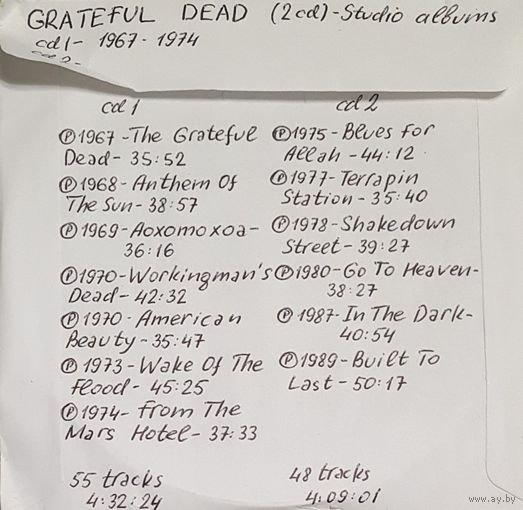 GRATEFUL DEAD (2cd)-Studio albums
cd1- 1967-1974
cd 2-
cd 1
Ⓟ1967-The Grateful
Dead-35:52
Ⓟ1968-Anthem Of
The Sun-38:57
Ⓟ1969-Aoxomoxoa-
36:16
Ⓟ1970-Workingman's
Dead-42:32
Ⓟ1970-American
Beauty-35:47
Ⓟ1973-Wake Of The
Flood-45:25
Ⓟ1974-From The
Mars Hotel-37:33
55 tracks
4:32:24
cd 2
Ⓟ1975-Blues For
Allah-44:12
Ⓟ1977-Terrapin
Station-35:40
Ⓟ1978-Shakedown
Street-39:27
Ⓟ1980-Go To Heaven-
38:27
Ⓟ1987-In The Dark-
40:54
Ⓟ1989-Built To
Last-50:17
48 tracks
4:09:01
www.ay.by